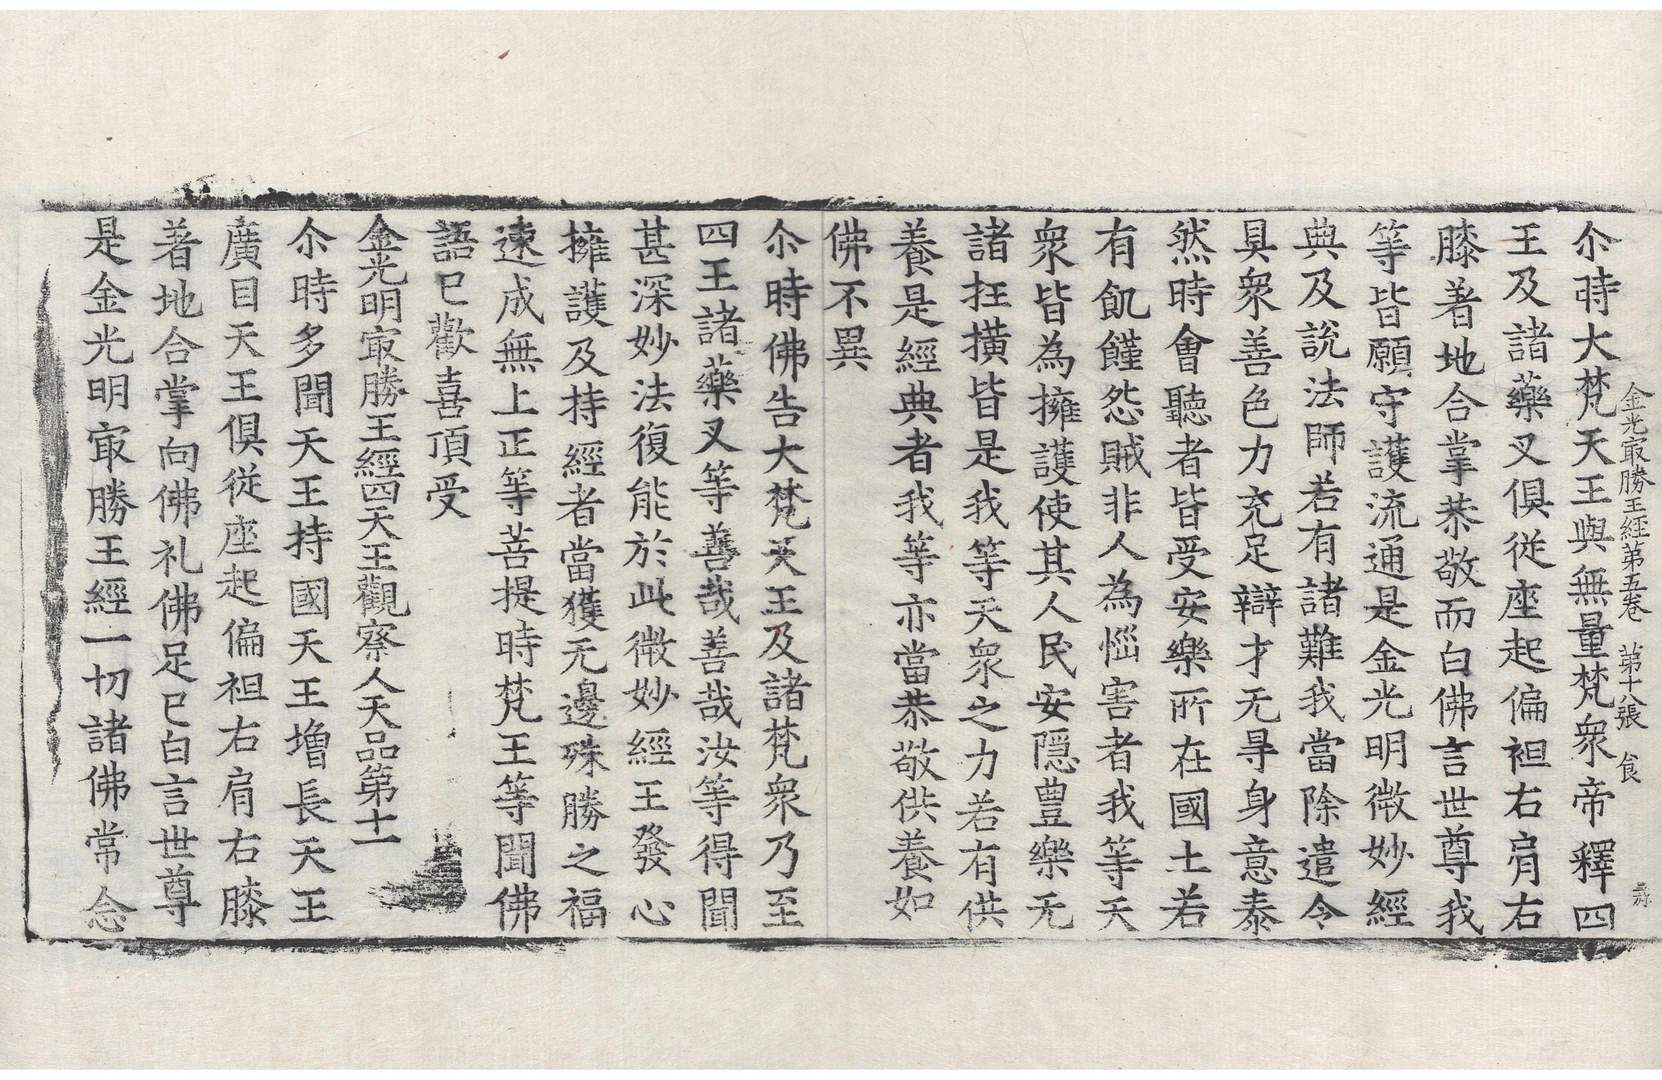 金光㝡勝王經第五卷　第十八張　食
尒時大梵天王與無量梵衆帝釋四
王及諸藥叉俱從座起偏袒右肩右
膝著地合掌恭敬而白佛言世尊我
等皆願守護流通是金光明微妙經
典及說法師若有諸難我當除遣令
具衆善色力充足辯才无㝵身意泰
然時會聽者皆受安樂所在國土若
有飢饉怨賊非人為惱害者我等天
衆皆為擁護使其人民安隱豊樂无
諸抂横皆是我等天衆之力若有供
養是經典者我等亦當恭敬供養如
佛不異
尒時佛告大梵天王及諸梵衆乃至
四王諸藥叉等善哉善哉汝等得聞
甚深妙法復能於此微妙經王發心
擁護及持經者當獲无邊殊勝之福
速成無上正等菩提時梵王等聞佛
語已歡喜頂受
金光明㝡勝王經四天王觀察人天品第十一
尒時多聞天王持國天王增長天王
廣目天王俱從座起偏袒右肩右膝
著地合掌向佛礼佛足已白言世尊
是金光明㝡勝王經一切諸佛常念